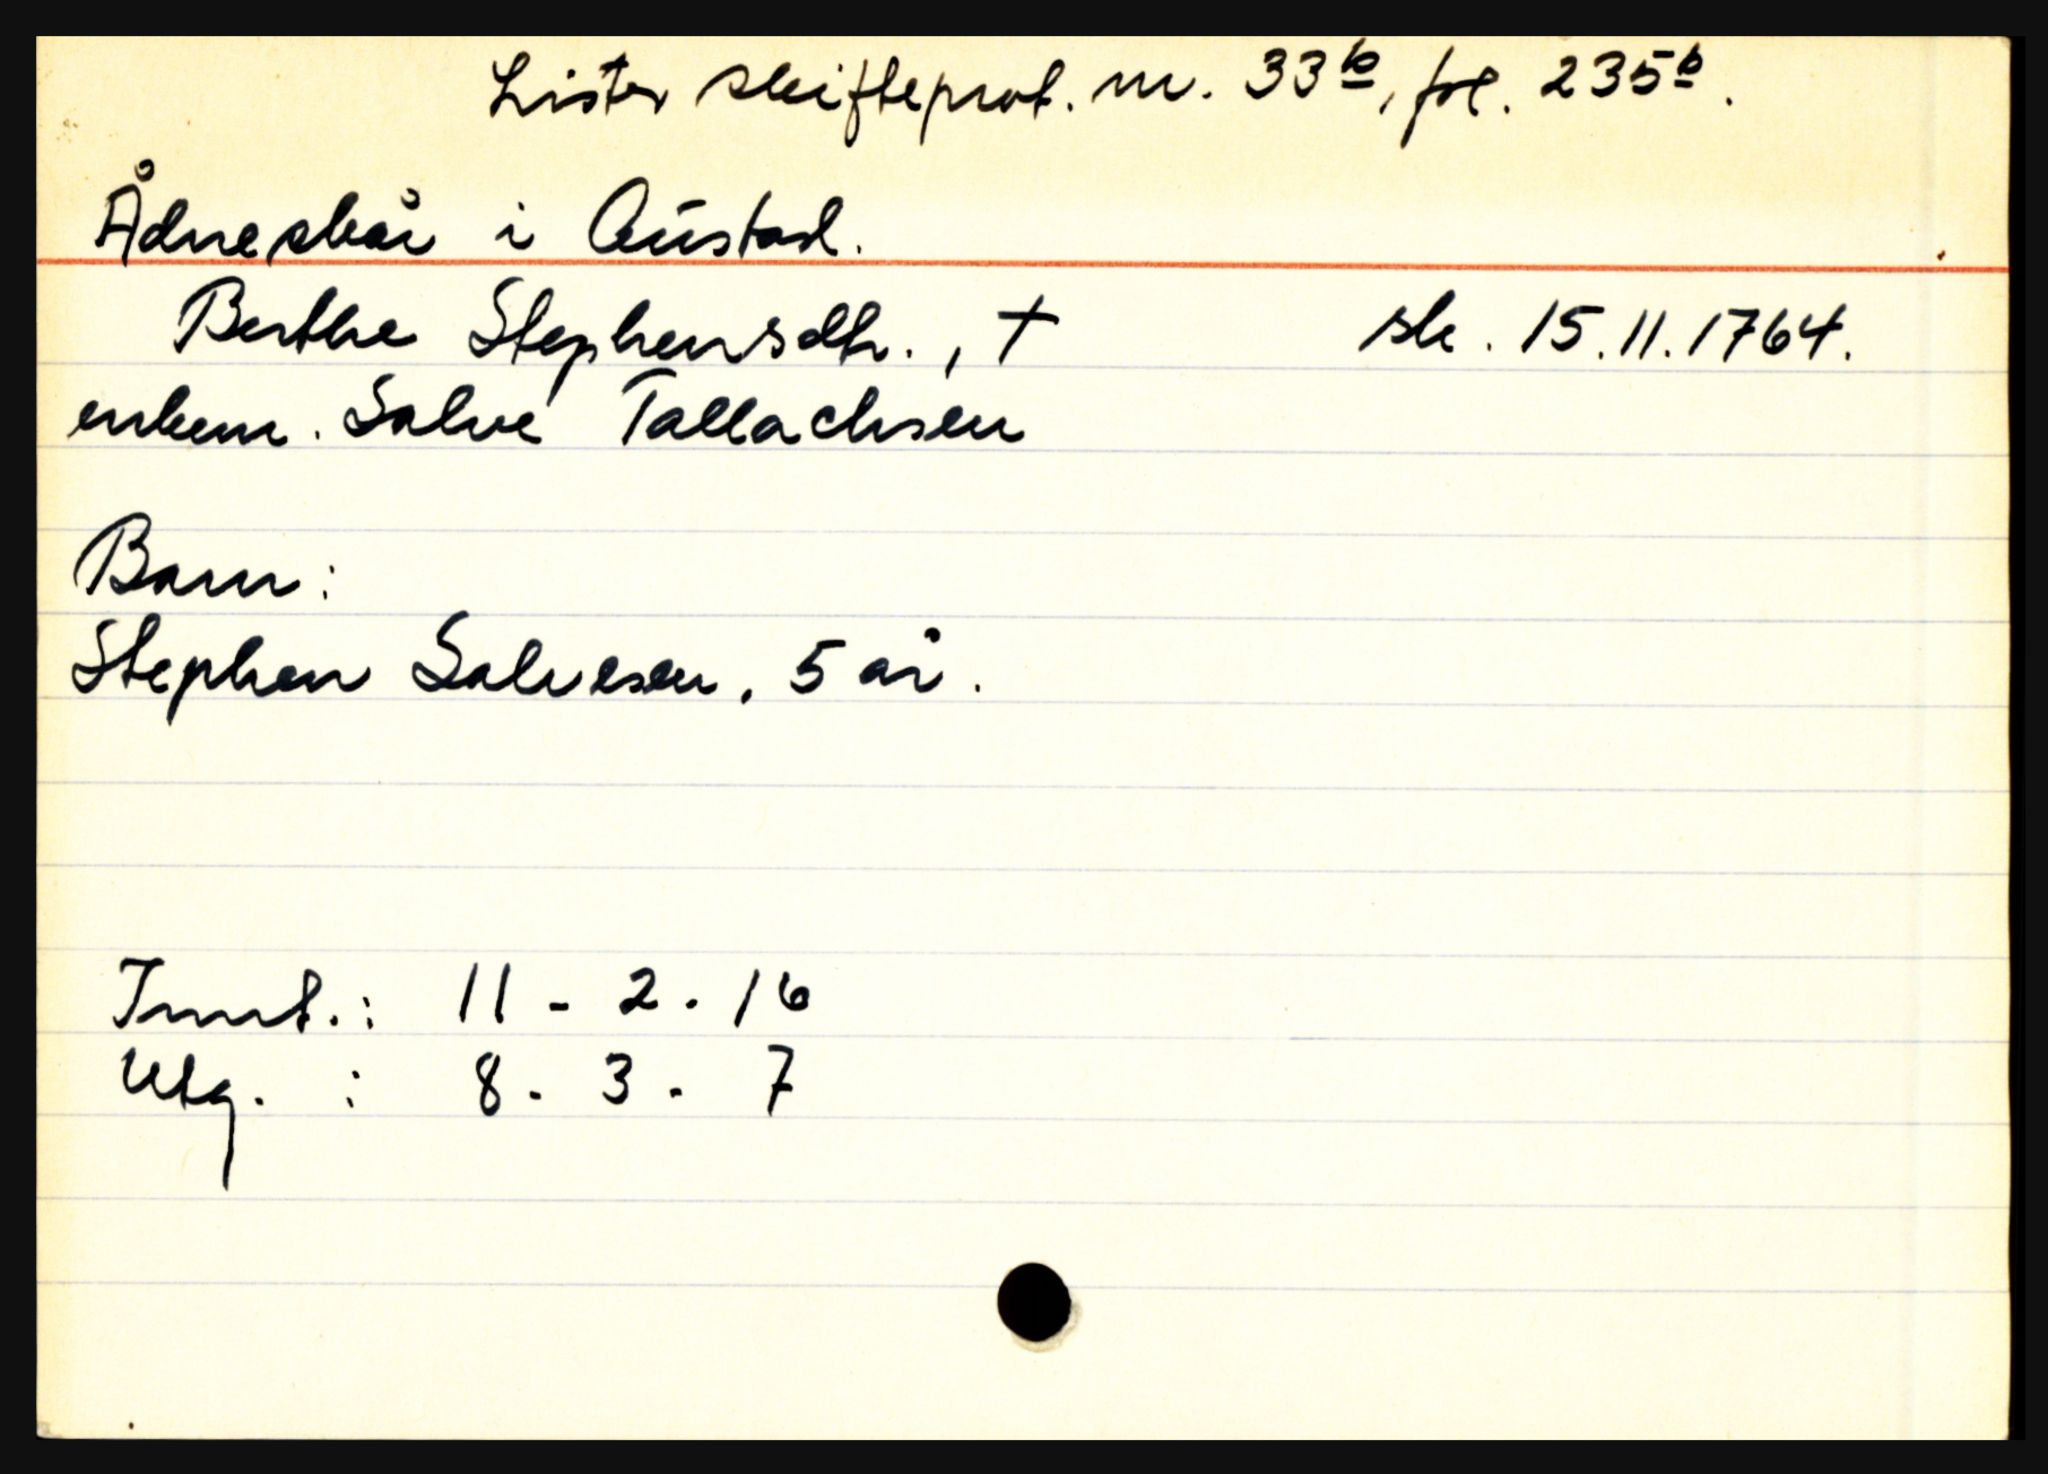 Lister skifteprot. nr. 33b, fol. 235b.
Ådneskår i Austad.
Berthe Stephensdtr., † sk. 15.11.1764.
enkem. Salve Tallachsen
Barn:
Stephen Salvesen, 5 år.
Innt.: 11 - 2 - 16
Utg. : 8 - 3 - 7